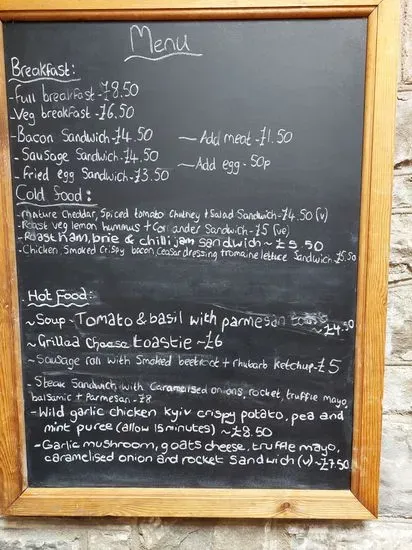 Menu
Breakfast:
- Full breakfast - £8.50
- Veg breakfast - £6.50
- Bacon Sandwich - £4.50 — Add meat - £1.50
- Sausage Sandwich - £4.50 — Add egg - 50p
- Fried egg Sandwich - £3.50
Cold food:
- mature Cheddar, Spiced tomato Chutney + Salad Sandwich - £4.50 (v)
- Roast veg lemon hummus + Coriander Sandwich - £5 (ve)
- Roast Ham, brie & chilli jam sandwich ~ £5.50
- Chicken, Smoked Crispy bacon, Ceasar dressing + romaine lettuce Sandwich - £5.50
Hot Food:
~ Soup - Tomato & basil with parmesan toast
~ £4.50
~ Grilled Cheese toastie - £6
~ Sausage roll with Smoked beetroot + rhubarb ketchup - £5
- Steak Sandwich with Caramelised onions, rocket, truffle mayo,
balsamic + Parmesan - £8
- Wild garlic chicken Kyiv crispy potato, pea and
mint puree (allow 15 minutes) ~ £8.50
- Garlic mushroom, goats cheese, truffle mayo,
caramelised onion and rocket Sandwich (v) - £7.50